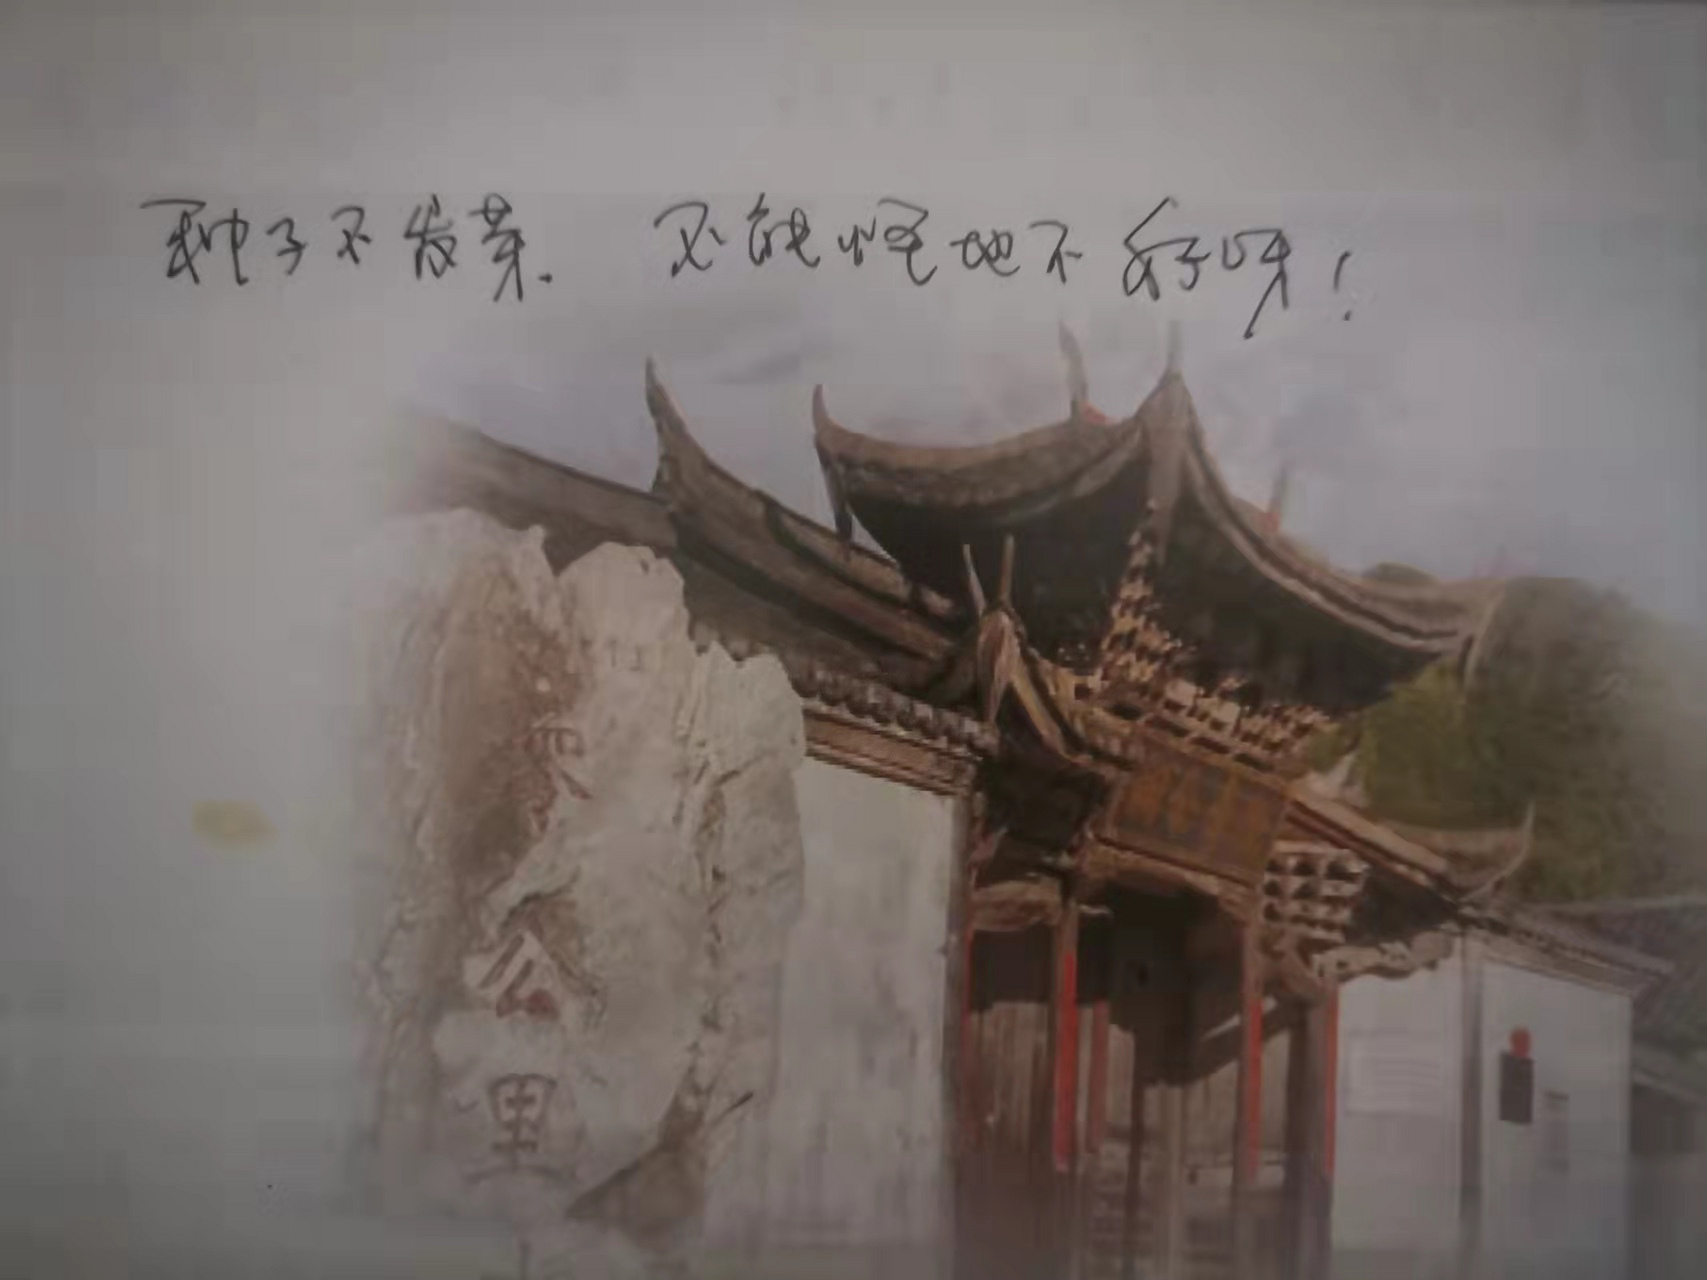 种子不发芽. 不能怪地不好呀!
公
里